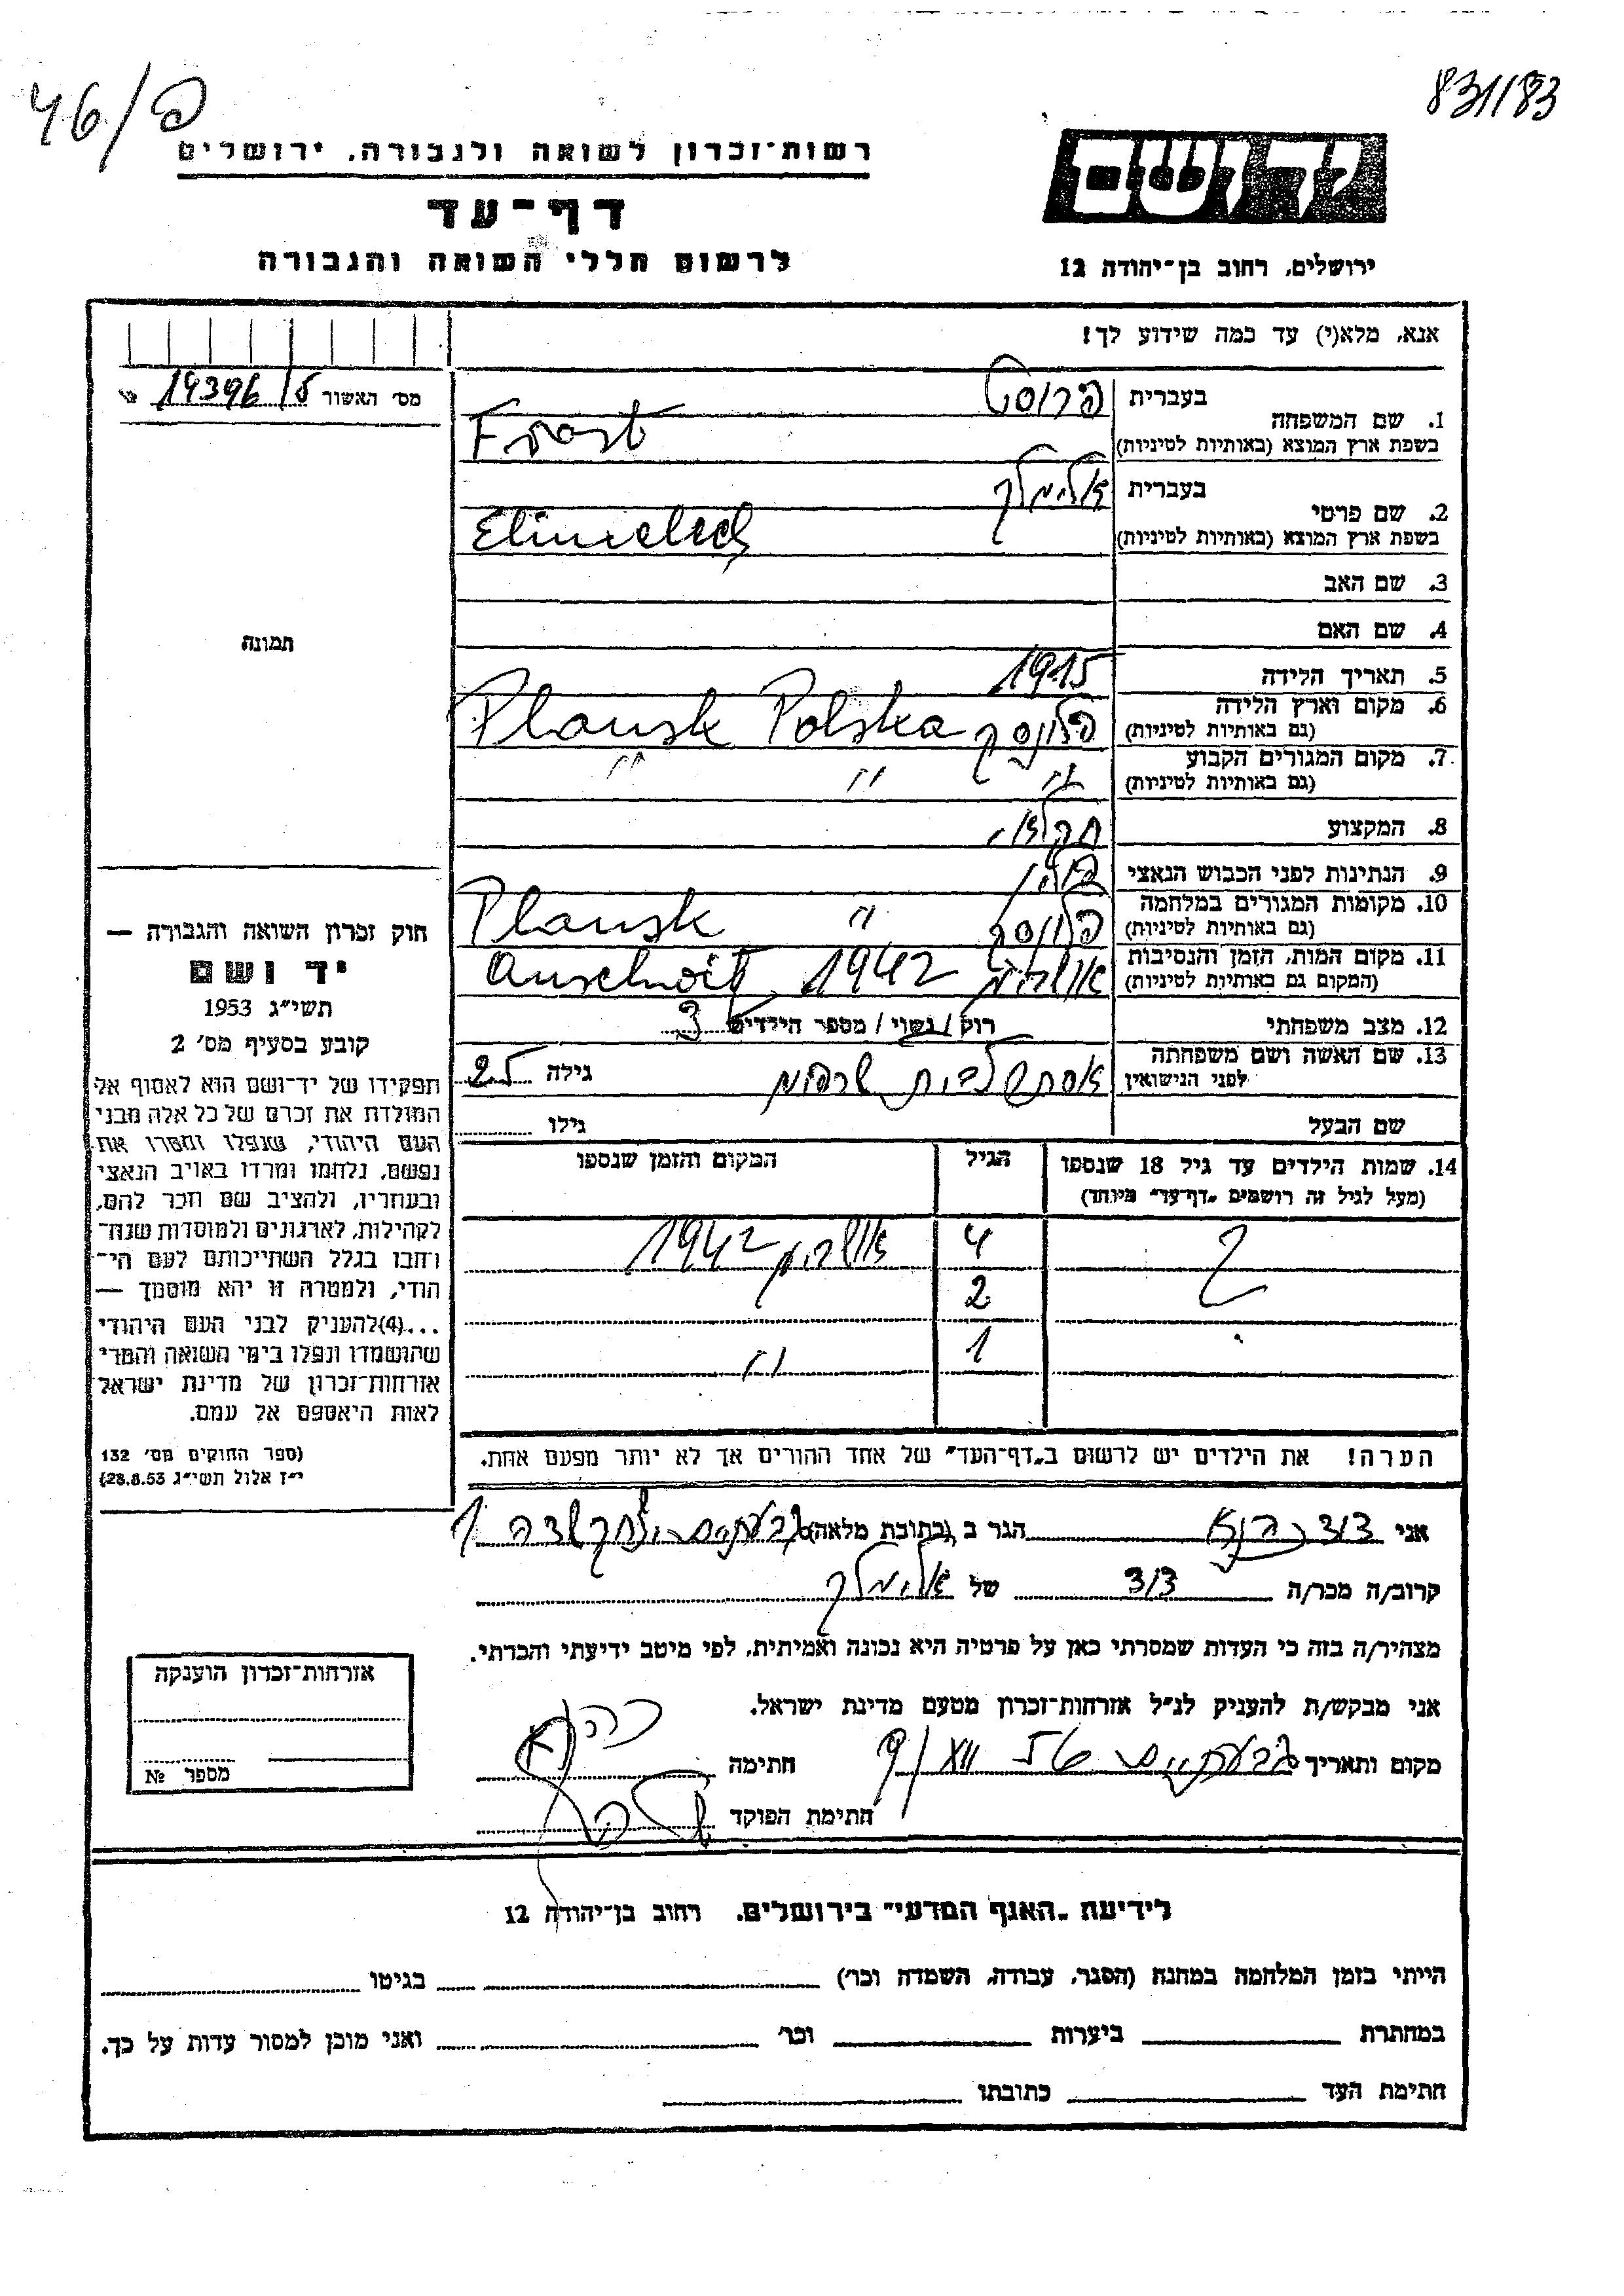 46/פ
831/83
רשות־זכרון לשואה ולגבורה, ירושלים
ידושם
דף־עד
לרשום חללי השואה והגבורה
ירושלים, רחוב בן־יהודה 12
אנא, מלא(י) עד כמה שידוע לך!
מס׳ האשור
1. שם המשפחה
בעברית פרוסט
בשפת ארץ המוצא (באותיות לטיניות) Frost
2. שם פרטי
בעברית אלימלך
בשפת ארץ המוצא (באותיות לטיניות) Elimelech
3. שם האב
4. שם האם
תמונה
5. תאריך הלידה 1915
6. מקום וארץ הלידה
(גם באותיות לטיניות) פלונסק Plonsk Polska
7. מקום המגורים הקבוע
(גם באותיות לטיניות) " " "
8. המקצוע
9. הנתינות לפני הכבוש הנאצי פולין
10. מקומות המגורים במלחמה
(גם באותיות לטיניות) פלונסק " Plonsk
11. מקום המות, הזמן והנסיבות
(המקום גם באותיות לטיניות) 1942
12. מצב משפחתי רוק / נשוי / מספר הילדים 3
13. שם האשה ושם משפחתה
לפני הנישואין אסתר גילה 25
שם הבעל גילו
14. שמות הילדים עד גיל 18 שנספו הגיל המקום והזמן שנספו
(מעל לגיל זה רושמים „דף־עד״ מיוחד)
4 1942
2
1 "
הערה! את הילדים יש לרשום ב„דף־העד״ של אחד ההורים אך לא יותר מפעם אחת.
חוק זכרון השואה והגבורה —
יד ושם
תשי״ג 1953
קובע בסעיף מס׳ 2
תפקידו של יד־ושם הוא לאסוף אל
המולדת את זכרם של כל אלה מבני
העם היהודי, שנפלו ומסרו את
נפשם, נלחמו ומרדו באויב הנאצי
ובעוזריו, ולהציב שם וזכר להם,
לקהילות, לארגונים ולמוסדות שנח־
רבו בגלל השתייכותם לעם הי־
הודי, ולמטרה זו יהא מוסמך —
...(4)להעניק לבני העם היהודי
שהושמדו ונפלו בימי השואה והמרי
אזרחות־זכרון של מדינת ישראל
לאות היאספם אל עמם.
(ספר החוקים מס׳ 132
י״ז אלול תשי״ג 28.8.53)
אני הגר ב (כתובת מלאה) גבעתיים
קרוב/ה מכר/ה דוד של אלימלך
מצהיר/ה בזה כי העדות שמסרתי כאן על פרטיה היא נכונה ואמיתית, לפי מיטב ידיעתי והכרתי.
אני מבקש/ת להעניק לנ״ל אזרחות־זכרון מטעם מדינת ישראל.
מקום ותאריך גבעתיים חתימה
חתימת הפוקד
אזרחות־זכרון הוענקה
מספר №
לידיעת „האגף המדעי״ בירושלים, רחוב בן־יהודה 12
הייתי בזמן המלחמה במחנה (הסגר, עבודה, השמדה וכו׳) בגיטו
במחתרת ביערות וכו׳ ואני מוכן למסור עדות על כך.
חתימת העד כתובתו